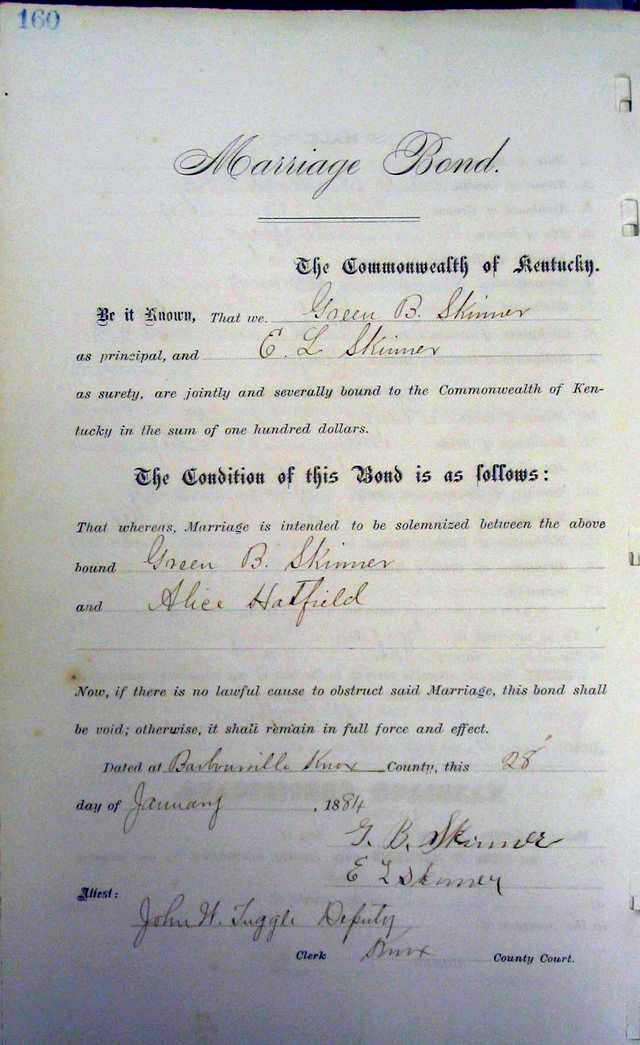 160
Marriage Bond.
The Commonwealth of Kentucky.
Be it Known, That we Green B. Skinner
as principal, and E. L Skinner
as surety, are jointly and severally bound to the Commonwealth of Ken-
tucky in the sum of one hundred dollars.
The Condition of this Bond is as follows:
That whereas, Marriage is intended to be solemnized between the above
bound Green B. Skinner
and Alice Hatfield
Now, if there is no lawful cause to obstruct said Marriage, this bond shall
be void; otherwise, it shall remain in full force and effect.
Dated at Barbourville Knox County, this 28
day of January, 1884
G. B. Skinner
E L Skinner
Attest:
John W. Tuggle Deputy
Clerk Knox County Court.